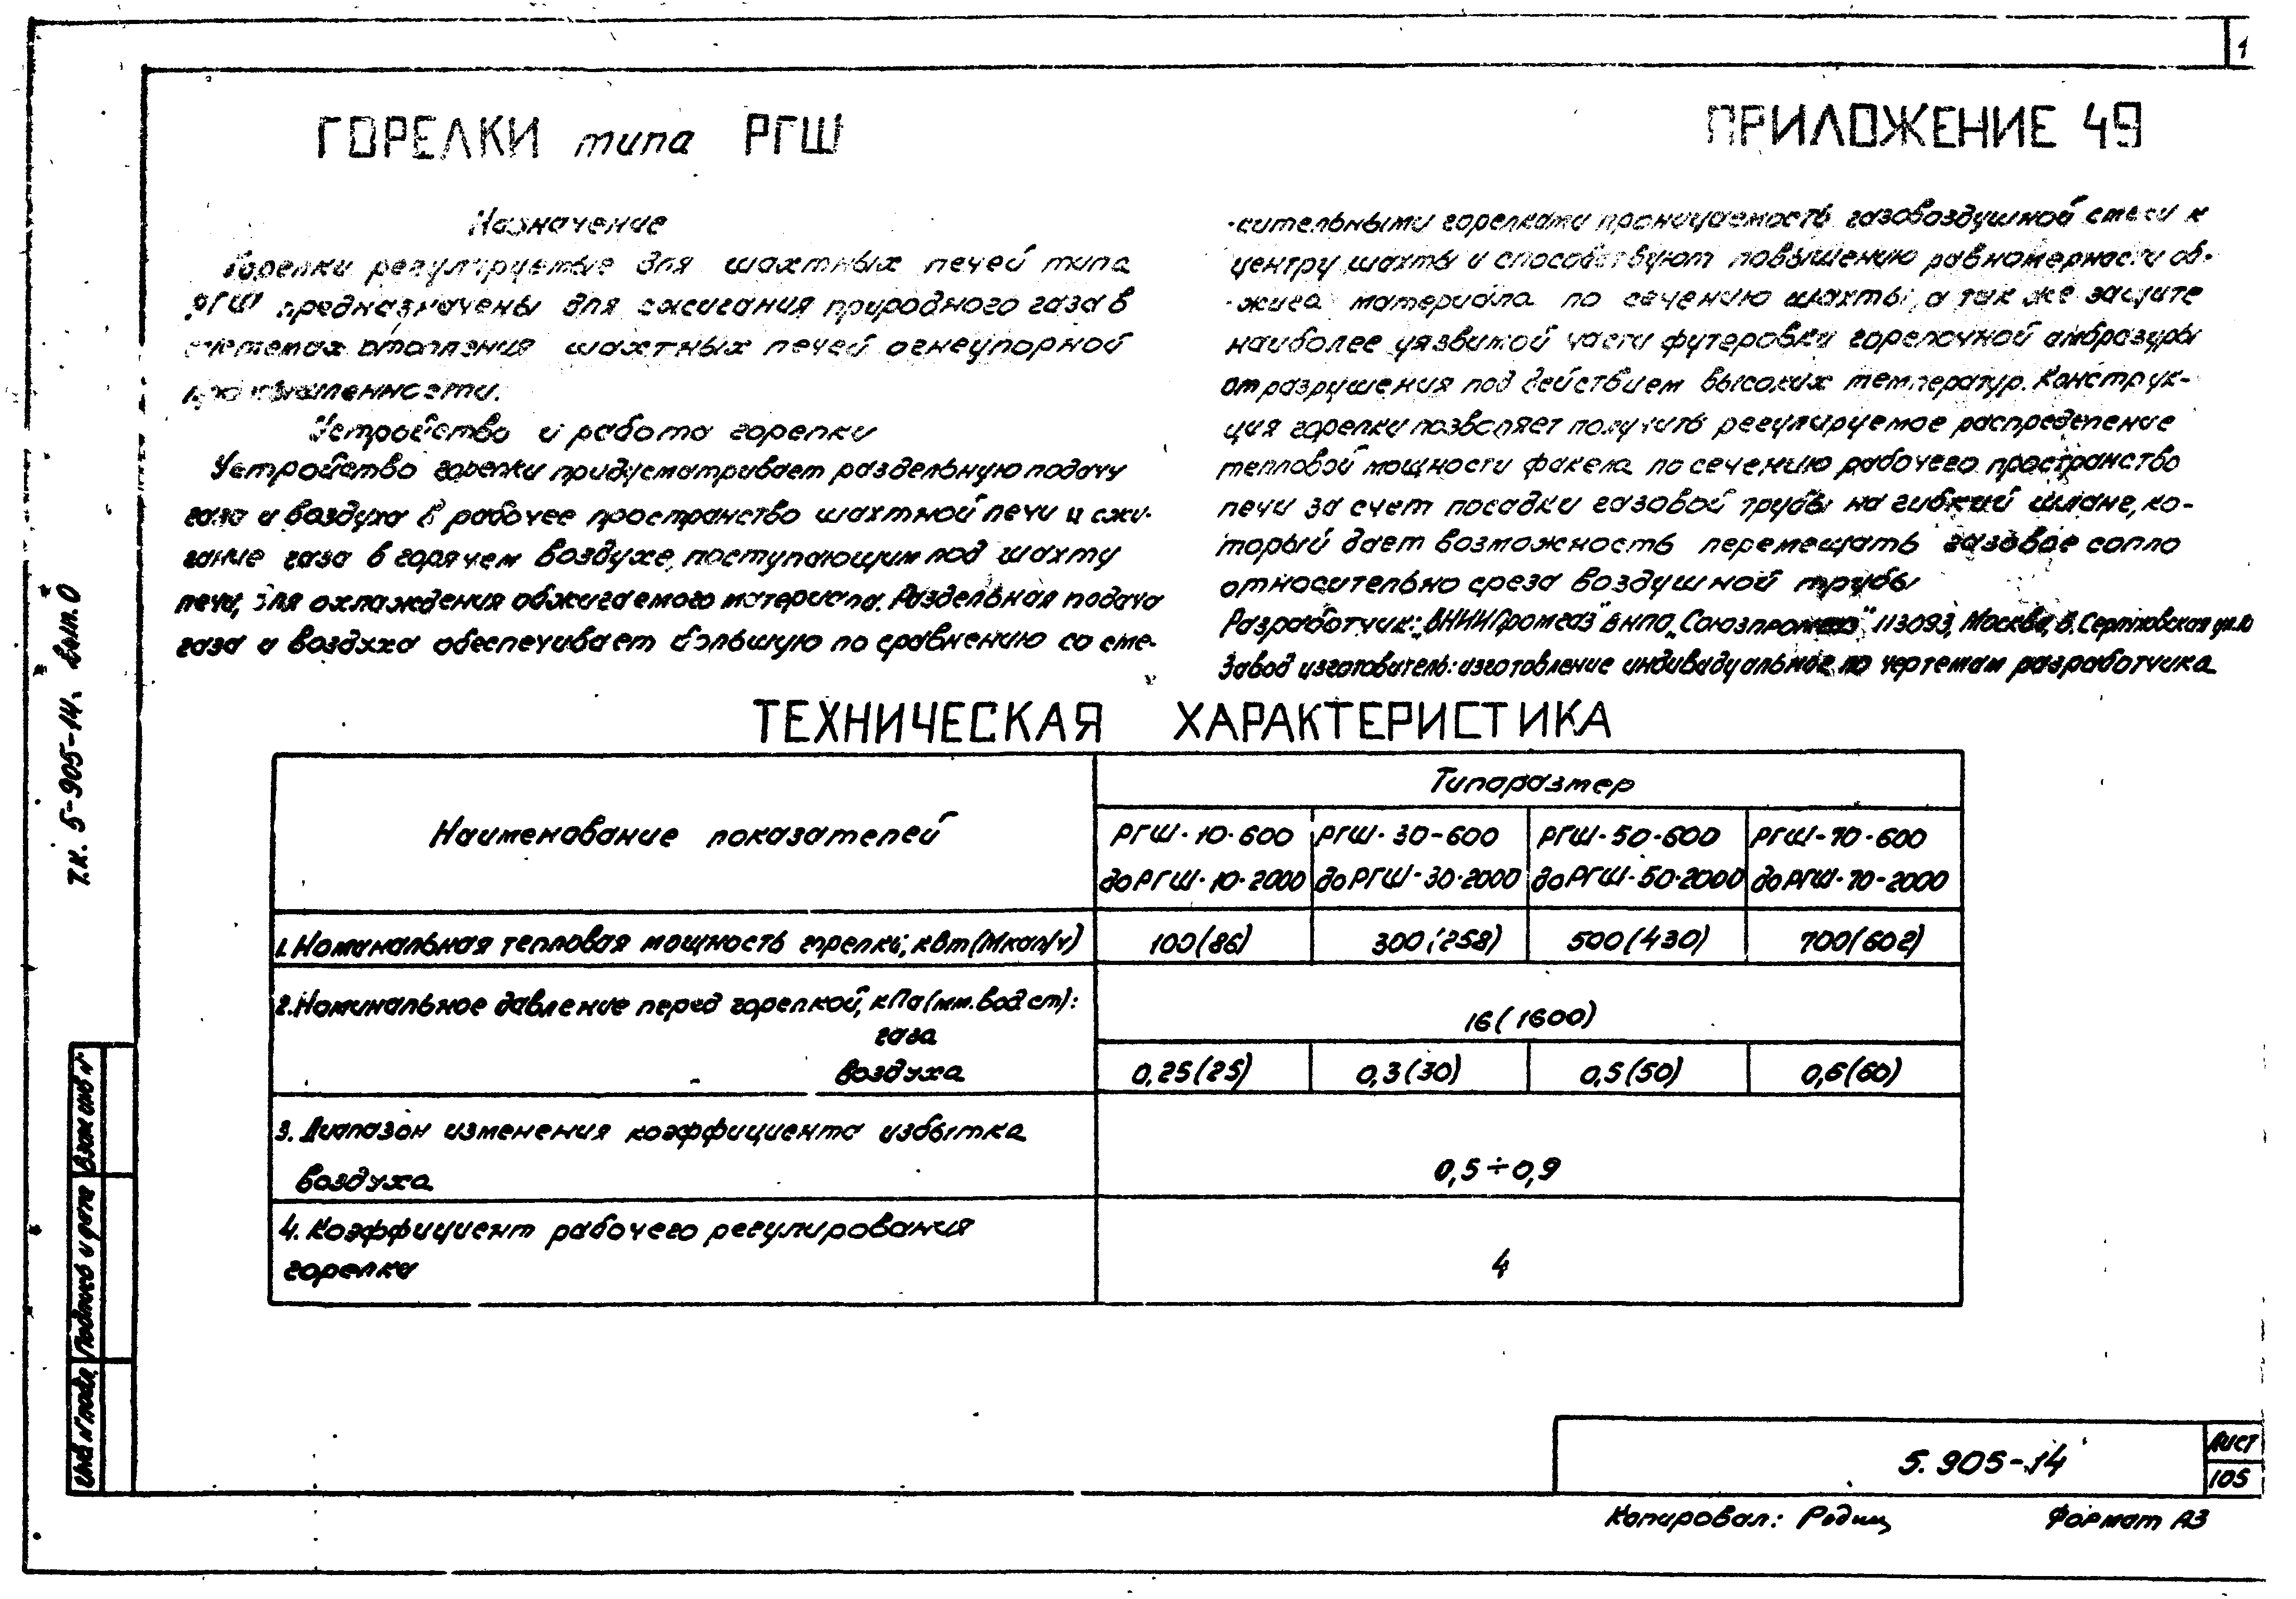 1
ГОРЕЛКИ типа РГШ
ПРИЛОЖЕНИЕ 49
Назначение
Горелки регулируемые для шахтных печей типа
РГШ предназначены для сжигания природного газа в
системах отопления шахтных печей огнеупорной
промышленности.
Устройство и работа горелки
Устройство горелки придусматривает раздельную подачу
газа и воздуха в рабочее пространство шахтной печи и сжи-
гание газа в горячем воздухе, поступающим под шахту
печи, для охлаждения обжигаемого материала. Раздельная подача
газа и воздуха обеспечивает большую по сравнению со сме-
сительными горелками проницаемость газовоздушной смеси к
центру шахты и способствуют повышению равномерности об-
жига материала по сечению шахты, а так же защите
наиболее уязвимой части футеровки горелочной амбразуры
от разрушения под действием высоких температур. Конструк-
ция горелки позволяет получить регулируемое распределение
тепловой мощности факела по сечению рабочего пространства
печи за счет посадки газовой трубы на гибкий шланг, ко-
торый дает возможность перемещать газовое сопло
относительно среза воздушной трубы
Разработчик: „ВНИИПромгаз" ВНПО „Союзпромгаз" 113093, Москва, Б. Серпуховская ул. 10
Завод изготовитель: изготовление индивидуальное по чертежам разработчика
ТЕХНИЧЕСКАЯ ХАРАКТЕРИСТИКА
Наименование показателей
Типоразмер
РГШ-10-600 до РГШ-10-2000
РГШ-30-600 до РГШ-30-2000
РГШ-50-600 до РГШ-50-2000
РГШ-70-600 до РГШ-70-2000
1. Номинальная тепловая мощность горелки, кВт (Мкал/ч)
100(86)
300(258)
500(430)
700(602)
2. Номинальное давление перед горелкой, кПа (мм. вод. ст):
газа
16(1600)
воздуха
0,25(25)
0,3(30)
0,5(50)
0,6(60)
3. Диапазон изменения коэффициента избытка
воздуха
0,5÷0,9
4. Коэффициент рабочего регулирования
горелки
4
Т.К. 5-905-14. Вып. 0
Взам инв N
Подпись и дата
Инв N подл
5.905-14
Лист
105
Копировал:
Формат А3